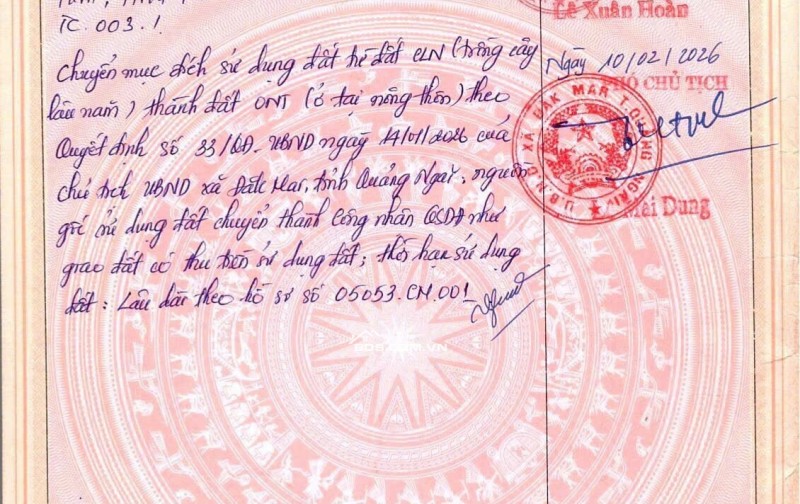 TC.003.1
Lê Xuân Hoàn
Chuyển mục đích sử dụng đất từ đất CLN (trồng cây
lâu năm) thành đất ONT (ở tại nông thôn) theo
Quyết định số 33/QĐ-UBND ngày 14/01/2026 của
chủ tịch UBND xã Đăk Mar, tỉnh Quảng Ngãi; nguồn
gốc sử dụng đất chuyển thành Công nhận QSDĐ như
giao đất có thu tiền sử dụng đất; thời hạn sử dụng
đất: Lâu dài theo hồ sơ số 05053.CM.001
Ngày 10/02/2026
PHÓ CHỦ TỊCH
U.B.N.D XÃ ĐĂK MAR T. QUẢNG NGÃI
Mai Dung